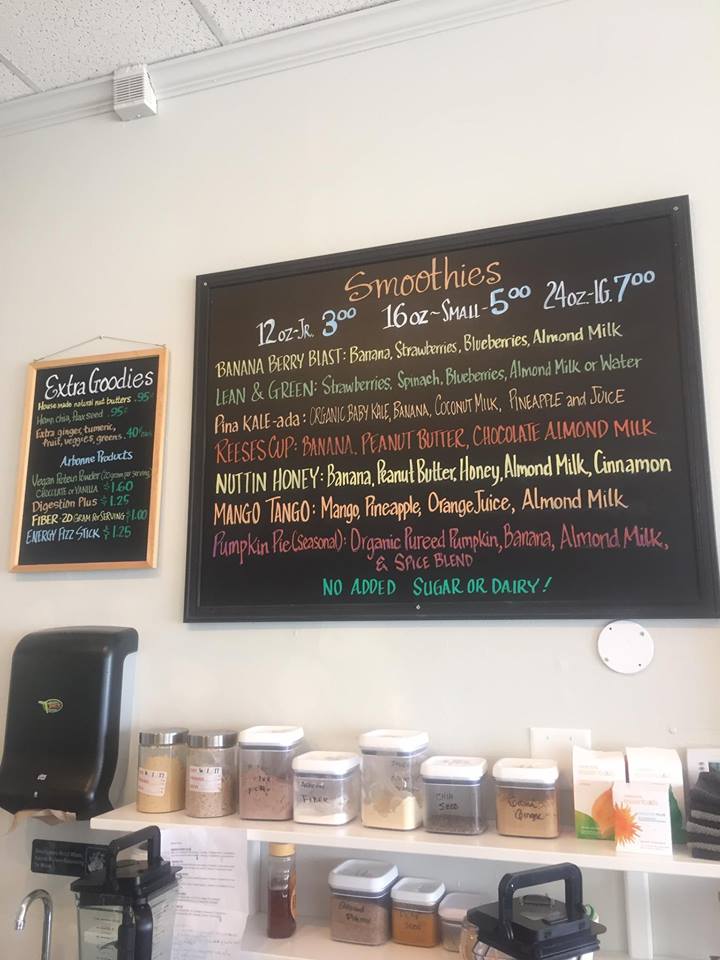 Smoothies
12 oz-Jr. 3.00 16 oz ~ Small - 5.00 24 oz.-lG. 7.00
BANANA BERRY BLAST: Banana, Strawberries, Blueberries, Almond Milk
LEAN & GREEN: Strawberries, Spinach, Blueberries, Almond Milk or Water
Pina KALE-ada: ORGANIC BABY KALE, BANANA, COCONUT MILK, PINEAPPLE and JUICE
REESES CUP: BANANA, PEANUT BUTTER, CHOCOLATE ALMOND MILK
NUTTIN HONEY: Banana, Peanut Butter, Honey, Almond Milk, Cinnamon
MANGO TANGO: Mango, Pineapple, Orange Juice, Almond Milk
Pumpkin Pie (Seasonal): Organic Pureed Pumpkin, Banana, Almond Milk,
& SPICE BLEND
NO ADDED SUGAR OR DAIRY!
Extra Goodies
House made natural nut butters .95¢
Hemp, chia, flax seed .95¢
Extra ginger, turmeric,
fruit, veggies, greens .40¢ each
Arbonne Products
Vegan Protein Powder (20 gram per serving)
CHOCOLATE or VANILLA $1.60
Digestion Plus $1.25
FIBER-12 GRAM PER SERVING $1.00
ENERGY FIZZ STICK $1.25
FIBER
CHIA
SEED
Ginger